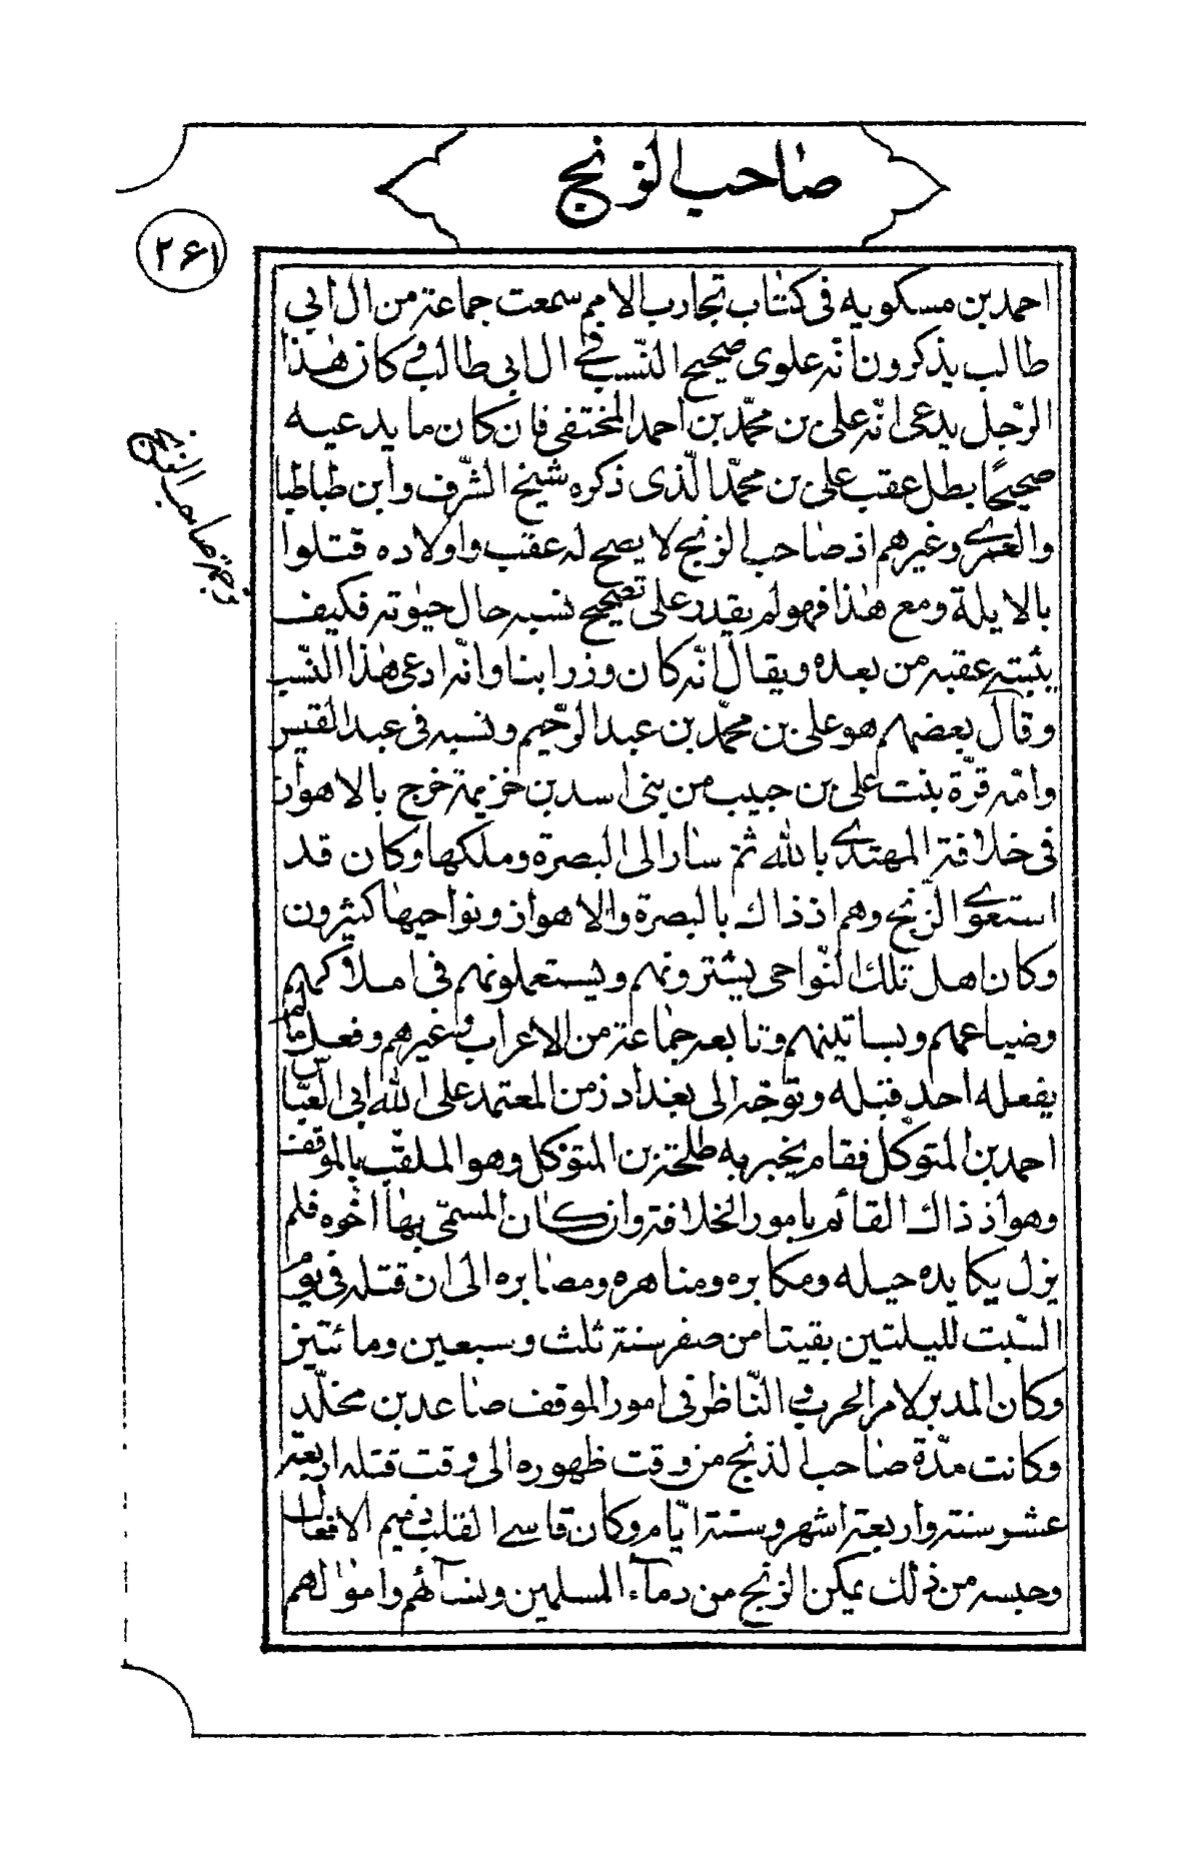 صاحب الزنج
۲۶۱
احمد بن مسكويه فى كتاب تجارب الامم سمعت جماعة من ال ابي
طالب يذكرون انّه علوى صحيح النّسب في ال ابى طالب و كان هذا
الرّجل يدعى انّه على بن محمّد بن احمد المختفى فان كان ما يدعيه
صحيحًا بطل عقب على بن محمّد الّذى ذكره شيخ الشّرف وابن طباطبا
والعمرى وغيرهم اذ صاحب الزنج لا يصح له عقب واولاده قتلوا
بالايلة ومع هذا فهو لم يقدر على تصحيح نسبه حال حيوته فكيف
يثبته عقبه من بعده ويقال انّه كان وزرابنا وانّه ادعى هذا النّسب
وقال بعضهم هو على بن محمّد بن عبد الرّحيم ونسبه فى عبد القيس
وامّه قرّة بنت على بن حبيب من بنى اسد بن خزيمة خرج بالاهواز
فى خلافة المهتدى بالله ثمّ سار الى البصرة وملكها وكان قد
استغوى الزّنج وهم اذ ذاك بالبصرة والاهواز ونواحيها كثيرون
وكان اهل تلك النّواحى يشترونهم ويستعملونهم فى املاكهم
وضياعهم وبساتينهم وتابعه جماعة من الاعراب وغيرهم وفعل مالم
يفعله احد قبله وتوجّه الى بغداد زمن المعتمد على الله ابى العبّاس
احمد بن المتوكّل فقام بخبر به طلحة بن المتوكل وهو الملقّب بالموفّق
وهو اذ ذاك القائم بامور الخلافة وان كان المسمّى بها اخوه فلم
يزل يكايده حيله ومكابره ومناهره ومصابره الى ان قتله فى يوم
السّبت لليلتين بقيتا من صفر سنة ثلث وسبعين ومائتين
وكان المدبر لامر الحرب و النّاظر فى امور الموفق صاعد بن مخلّد
وكانت مدّة صاحب الزنج من وقت ظهوره الى وقت قتله اربعة
عشر سنة واربعة اشهر وستة ايّام وكان قاسى القلب ذميم الافعال
وحبسه من ذلك يمكن الزنج من دمآء المسلمين ونسآئهم واموالهم
ترجمة صاحب الزنج